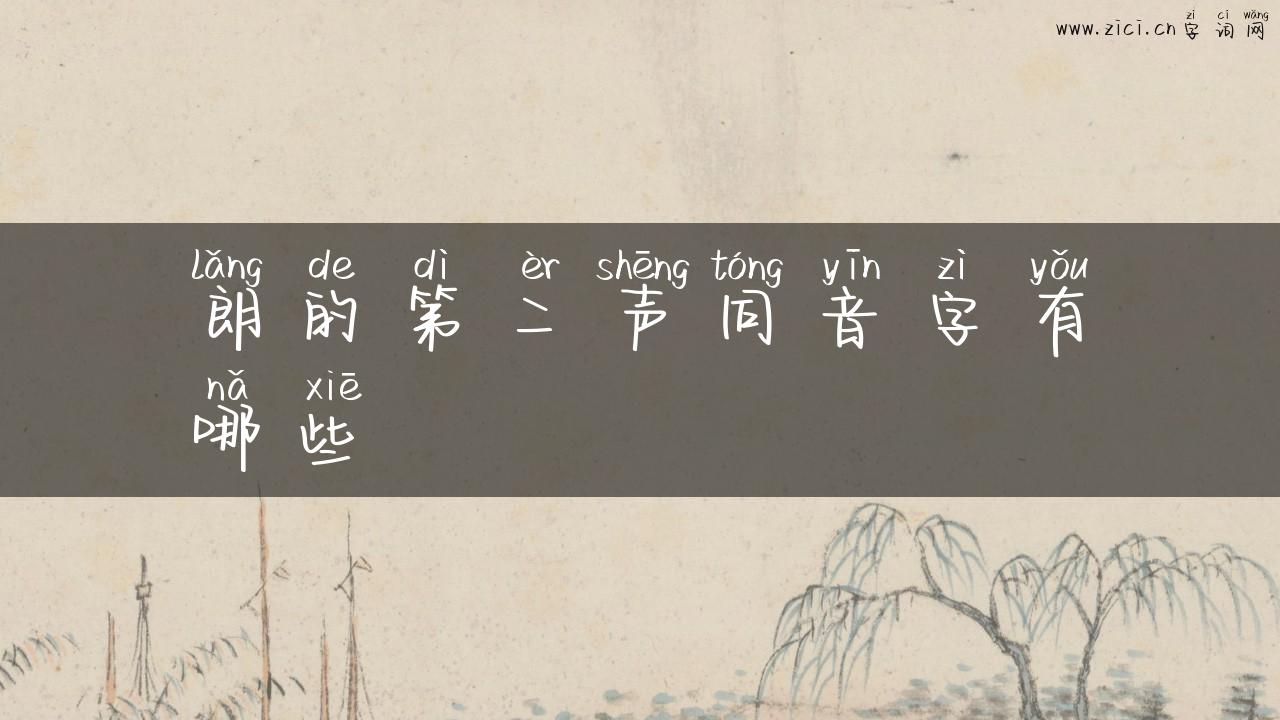 zì cí wǎng
www.zici.cn 字词网
lǎng de dì èr shēng tóng yīn zì yǒu
朗的第二声同音字有
nǎ xiē
哪些